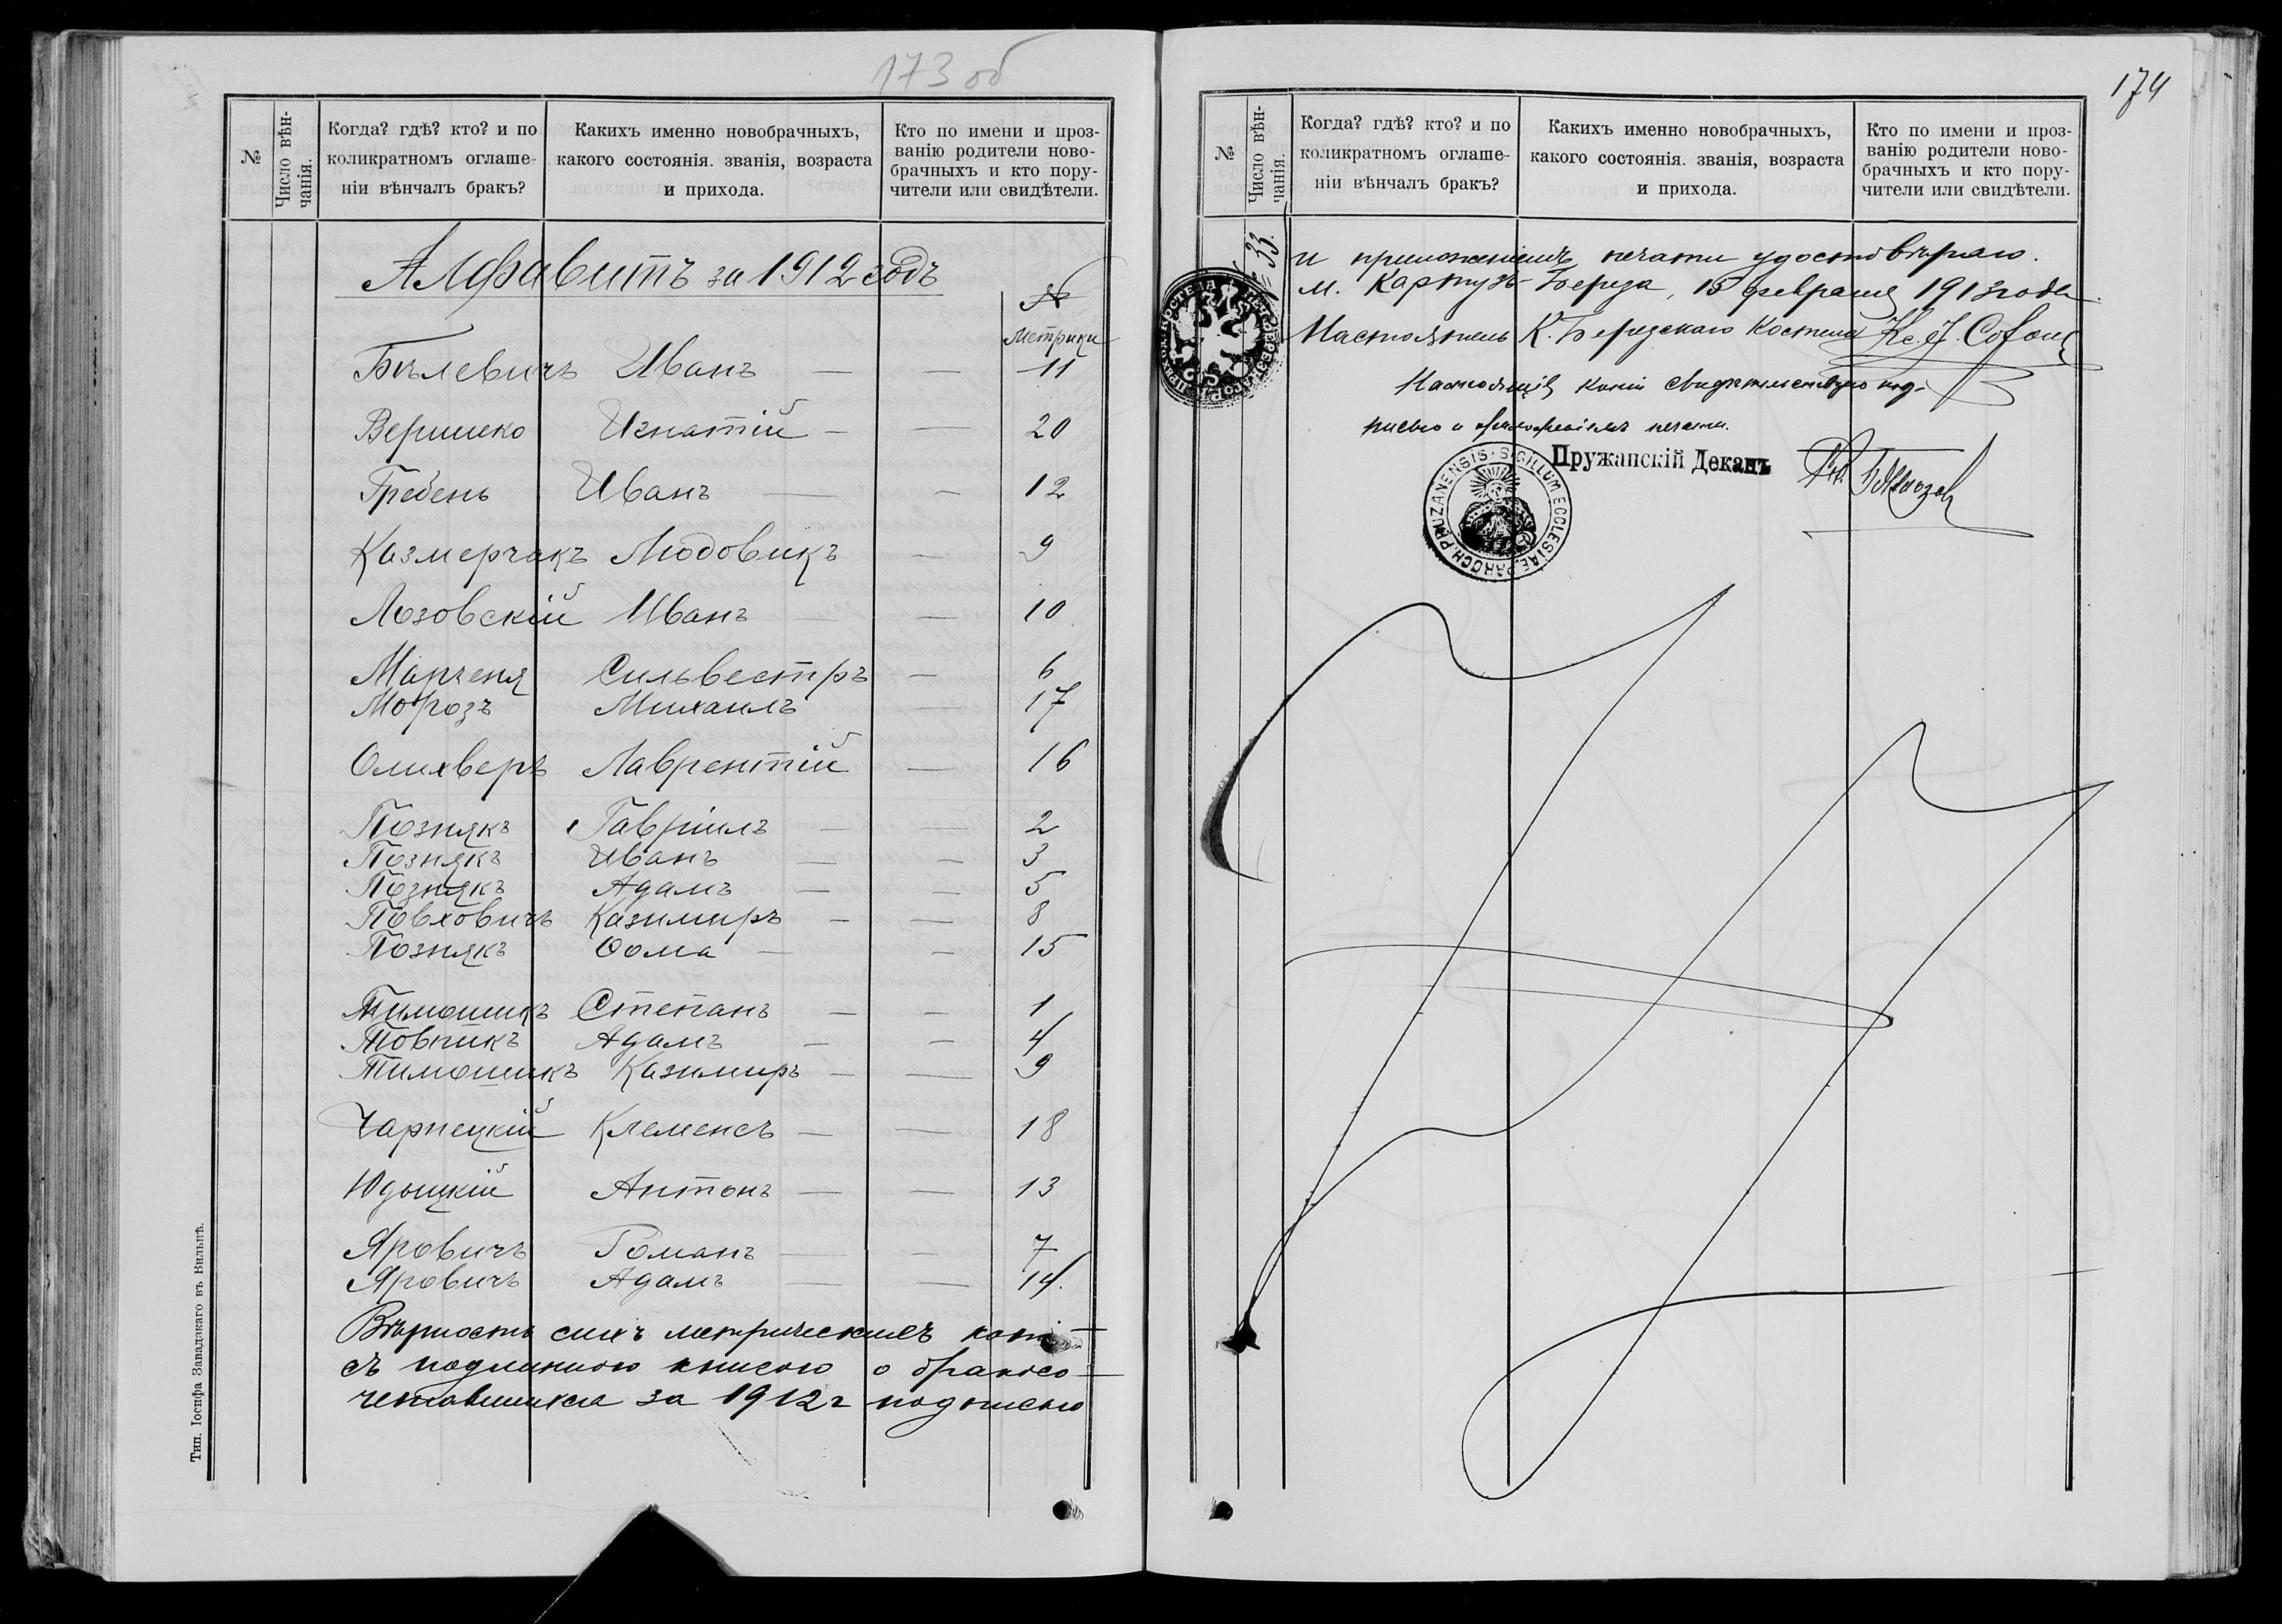 173 об
№
Число вѣн-
чанія.
Когда? гдѣ? кто? и по
коликратномъ оглаше-
ніи вѣнчалъ бракъ?
Какихъ именно новобрачныхъ,
какого состоянія. званія, возраста
и прихода.
Кто по имени и проз-
ванію родители ново-
брачныхъ и кто пору-
чители или свидѣтели.
Алфавитъ за 1912 годъ
№
метрики
Бѣлевичъ Иванъ — — 11
Вершеко Игнатій — — 20
Гребень Иванъ — — 12
Казмерчакъ Людовикъ — 9
Лозовскій Иванъ — — 10
Манченя Сильвестръ — 6
Морозъ Михаилъ — 17
Олихверъ Лаврентій — 16
Познякъ Гавріилъ — — 2
Познякъ Иванъ — — 3
Познякъ Адамъ — — 5
Повховичъ Казимиръ — — 8
Познякъ Ѳома — — 15
Тимошикъ Степанъ — — 1
Товпикъ Адамъ — — 4
Тимошикъ Казимиръ — — 9
Чарнецкій Клеменсъ — — 18
Юдыцкій Антонъ — — 13
Яровичъ Романъ — — 7
Яровичъ Адамъ — — 14.
Вѣрность сихъ метрическихъ копі-
съ подлинною книгою о бракосо-
четавшихся за 1912 г подписью
Тип. Іосифа Завадзкаго въ Вильнѣ.
174
№
Число вѣн-
чанія.
Когда? гдѣ? кто? и по
коликратномъ оглаше-
ніи вѣнчалъ бракъ?
Какихъ именно новобрачныхъ,
какого состоянія. званія, возраста
и прихода.
Кто по имени и проз-
ванію родители ново-
брачныхъ и кто пору-
чители или свидѣтели.
№ 33.
и приложеніемъ печати удостовѣряю.
м. Картузъ-Береза, 15 февраля 1913 года.
Настоятель К. Березскаго Костела Кс. J.
Настоящія копіи свидѣтельствую под-
писью и приложеніемъ печати.
Пружанскій Деканъ Кс.
SIGILLUM ECCLESIAE PAROCH. PRUZANENSIS